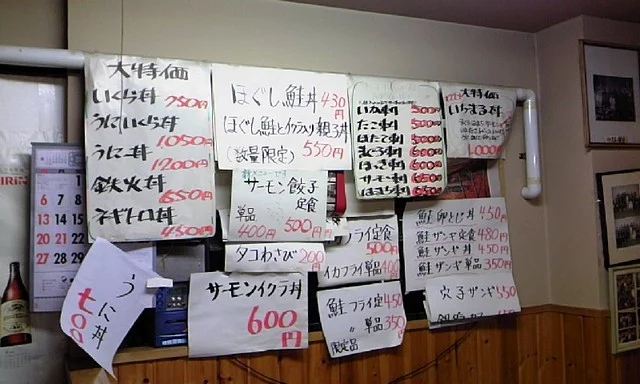 大特価
いくら丼 750円
うにいくら丼 1050円
うに丼 1200円
鉄火丼 650円
ネギトロ丼 450円
ほぐし鮭丼 430円
ほぐし鮭とイクラ入り親子丼
(数量限定) 550円
いか刺 500円
たこ刺 500円
ほたて刺 500円
まぐろ刺 600円
ほっき刺 600円
サーモン刺 650円
大特価
いちまる丼
1,000円
サーモン餃子
定食
単品
400円 500円
タコわさび 200
フライ定食
500円
イカフライ単品
鮭フライ定 450
〃 単品 350
限定品
鮭卵とじ丼 450円
鮭ザンギ定食 480円
鮭ザンギ丼 450円
鮭ザンギ単品 350円
穴子ザンギ 550
サーモンイクラ丼
600円
うに丼
七〇〇
6 7 8 9
13 14 15 16
20 21 22 23
27 28 29